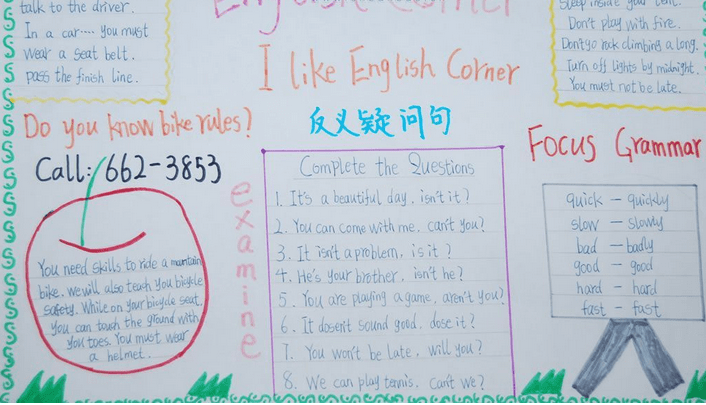 talk to the driver.
In a car.... you must
wear a seat belt.
pass the finish line.
English Corner
Sleep inside your tent.
Don't play with fire.
Don't go rock climbing a long.
Turn off lights by midnight.
You must not be late.
I like English Corner
Do you know bike rules?
反义疑问句
Call: 662-3853
You need skills to ride a mountain
bike. we will also teach you bicycle
safety. While on your bicycle seat,
you can touch the ground with
you toes. You must wear
a helmet.
examine
Complete the Questions
1. It's a beautiful day, isn't it?
2. You can come with me, can't you?
3. It isn't a problem, is it?
4. He's your brother, isn't he?
5. You are playing a game, aren't you?
6. It dosen't sound good, dose it?
7. You won't be late, will you?
8. We can play tennis, can't we?
Focus Grammar
quick - quickly
slow - slowly
bad - badly
good - good
hard - hard
fast - fast